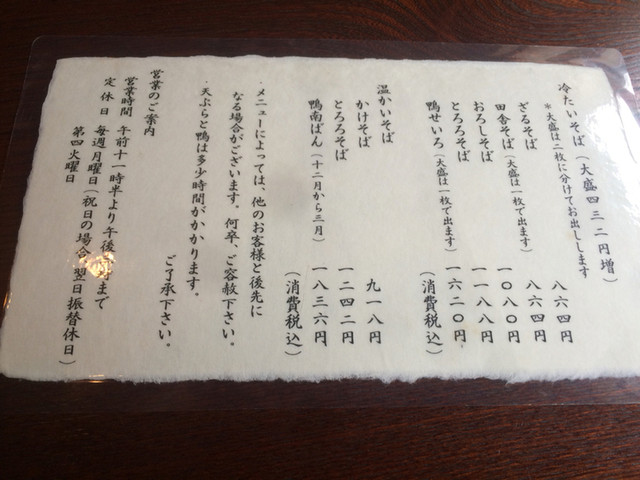 冷たいそば（大盛四三二円増）
＊大盛は二枚に分けてお出しします
ざるそば 八六四円
田舎そば（大盛は一枚で出ます） 八六四円
おろしそば 一〇八〇円
とろろそば 一一八八円
鴨せいろ（大盛は一枚で出ます） 一六二〇円
（消費税込）
温かいそば
かけそば 九一八円
とろろそば 一二四二円
鴨南ばん（十二月から三月） 一八三六円
（消費税込）
・メニューによっては、他のお客様と後先に
なる場合がございます。何卒、ご容赦下さい。
・天ぷらと鴨は多少時間がかかります。
ご了承下さい。
営業のご案内
営業時間 午前十一時半より午後 時まで
定休日 毎週月曜日（祝日の場合 翌日 振替休日）
第四火曜日